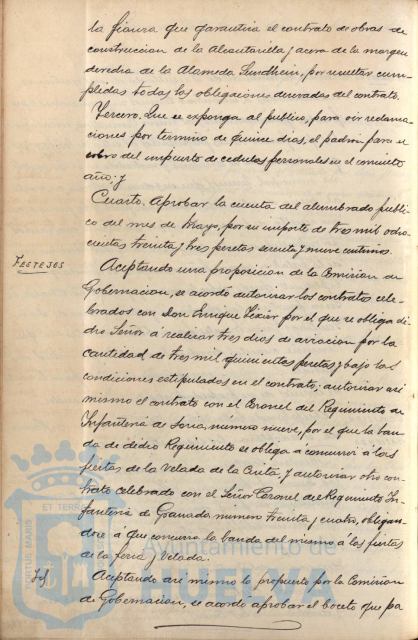 la fianza que garantiza el contrato de obras de
construccion de la Alcantarilla y acera de la margen
derecha de la Alameda Sundheim, por resultar cum-
plidas todas las obligaciones derivadas del contrato.
Tercero. Que se exponga al publico, para oir reclama-
ciones por termino de quince dias, el padrón para el
cobro del impuesto de cedulas personales en el corriente
año; y
Cuarto. Aprobar la cuenta del alumbrado publi-
co del mes de Mayo, por su importe de tres mil ocho-
cientas treinta y tres pesetas sesenta y nueve centimos.
FESTEJOS
Aceptando una proposicion de la Comision de
Gobernacion, se acordó autorizar los contratos cele-
brados con Don Enrique por el que se obliga
dicho Señor á realizar tres dias de aviacion por la
cantidad de tres mil quinientas pesetas y bajo las
condiciones estipuladas en el contrato; autorizar asi
mismo el contrato con el Coronel del Regimiento de
Infanteria de Soria, numero nueve, por el que la ban-
da de dicho Regimiento se obliga a concurrir á las
fiestas de la Velada de la Cinta, y autorizar otro con-
trato celebrado con el Señor Coronel del Regimiento In-
fanteria de Granada numero treinta y cuatro, obligan-
dose a que concurra la banda del mismo á las fiestas
de la feria y Velada.
Aceptando asi mismo lo propuesto por la Comision
de Gobernacion, se acordó aprobar el boceto que pa
ET TERRAE
PORTUS MARIS
Ayuntamiento de
HUELVA